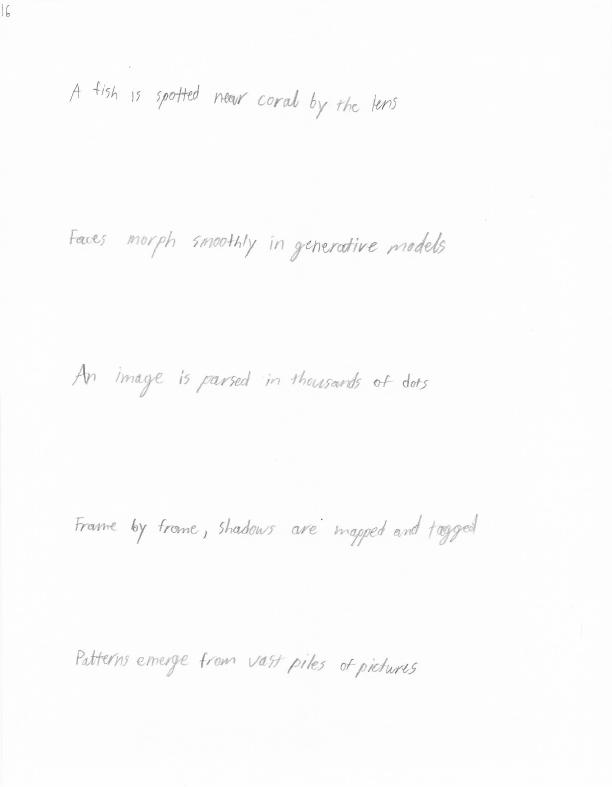 16
A fish is spotted near coral by the lens
Faces morph smoothly in generative models
An image is parsed in thousands of dots
Frame by frame, shadows are mapped and tagged
Patterns emerge from vast piles of pictures